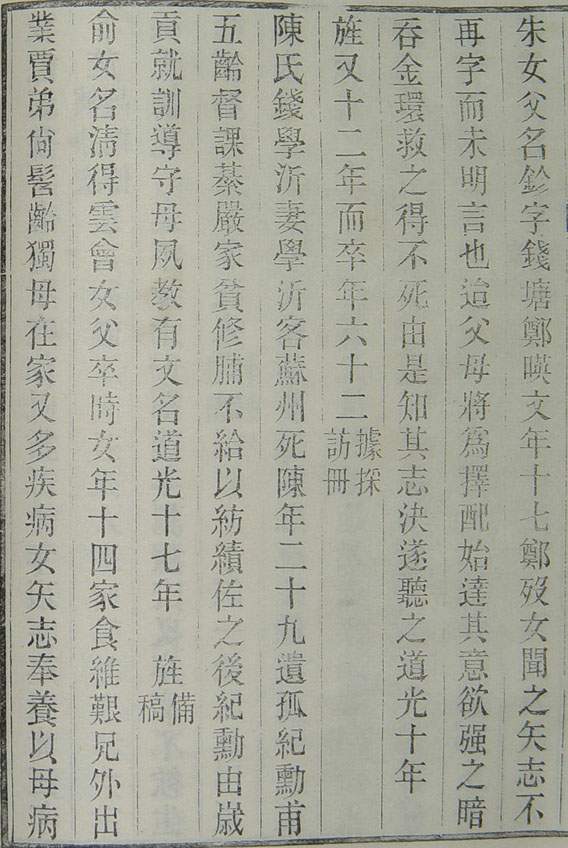 朱女父名鈖字錢塘鄭暎文年十七鄭歿女聞之矢志不
再字而未明言也迨父母將爲擇配始達其意欲强之暗
吞金環救之得不死由是知其志決遂聽之道光十年
旌又十二年而卒年六十二據採訪冊
陳氏錢學沂妻學沂客蘇州死陳年二十九遺孤紀勳甫
五齡督課綦嚴家貧修脯不給以紡績佐之後紀勳由歲
貢就訓導守母夙教有文名道光十七年 旌備稿
俞女名淸得雲會女父卒時女年十四家食維艱兄外出
業賈弟尙髫齡獨母在家又多疾病女矢志奉養以母病